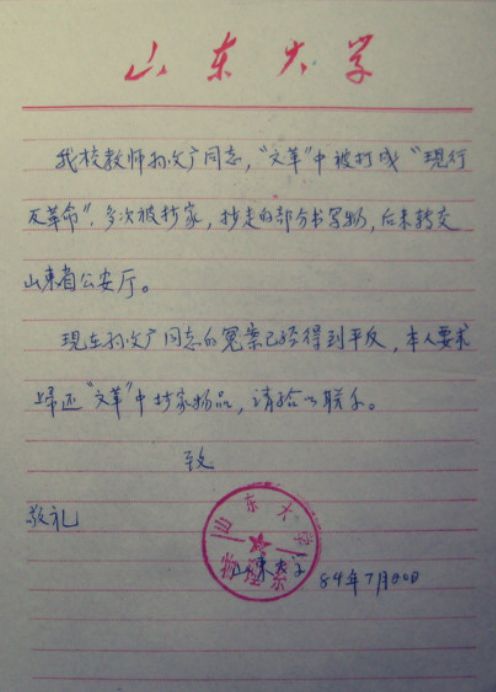 山东大学
我校教师孙文广同志，“文革”中被打成“現行
反革命”，多次被抄家，抄走的部分书写物，后来转交
山東省公安厅。
現在孙文广同志的冤案已经得到平反，本人要求
归还“文革”中抄家物品，请给以联系。
致
敬礼
山东大学
物理系
山東大学
84年7月